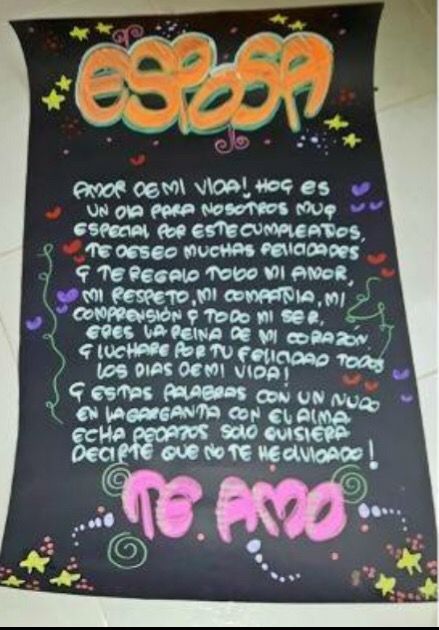 ESPOSA
AMOR DE MI VIDA! HOY ES
UN DIA PARA NOSOTROS MUY
ESPECIAL POR ESTE CUMPLEAÑOS,
TE DESEO MUCHAS FELICIDADES
Y TE REGALO TODO MI AMOR,
MI RESPETO, MI COMPAÑIA, MI
COMPRENSIÓN Y TODO MI SER,
ERES LA REINA DE MI CORAZÓN
Y LUCHARE POR TU FELICIDAD TODOS
LOS DIAS DE MI VIDA!
Y ESTAS PALABRAS CON UN NUDO
EN LA GARGANTA CON EL ALMA
ECHA PEDAZOS SOLO QUISIERA
DECIRTE QUE NO TE HE OLVIDADO!
TE AMO